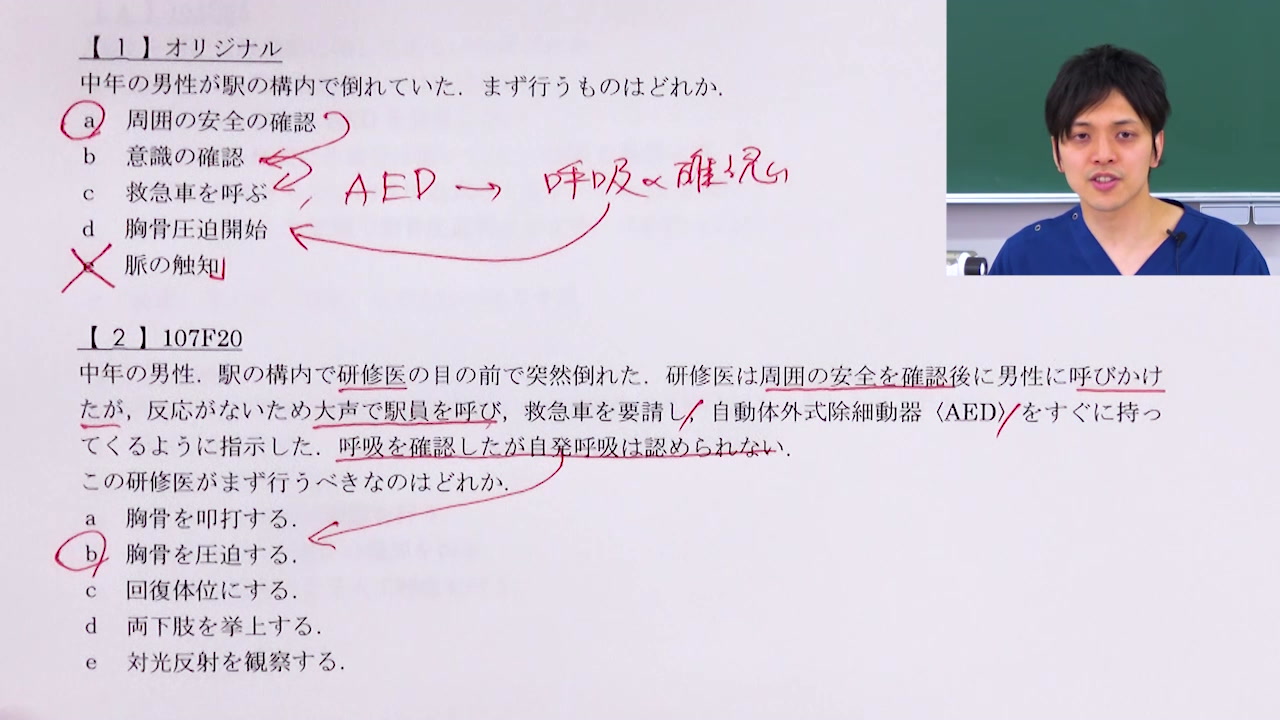 【 1 】オリジナル
中年の男性が駅の構内で倒れていた．まず行うものはどれか．
a 周囲の安全の確認
b 意識の確認
c 救急車を呼ぶ , AED → 呼吸の確認
d 胸骨圧迫開始
e 脈の触知
【 2 】107F20
中年の男性．駅の構内で研修医の目の前で突然倒れた．研修医は周囲の安全を確認後に男性に呼びかけ
たが，反応がないため大声で駅員を呼び，救急車を要請し，自動体外式除細動器〈AED〉をすぐに持っ
てくるように指示した．呼吸を確認したが自発呼吸は認められない．
この研修医がまず行うべきなのはどれか．
a 胸骨を叩打する．
b 胸骨を圧迫する．
c 回復体位にする．
d 両下肢を挙上する．
e 対光反射を観察する．